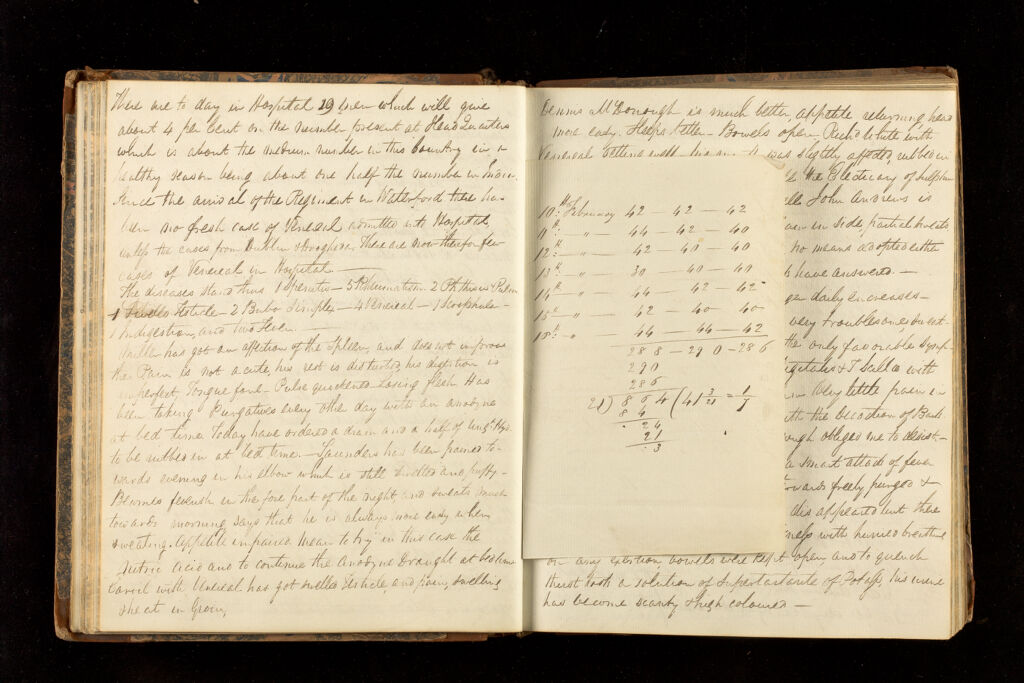 There are to day in Hospital 19 men which will give
about 4 per Cent on the number present at Head Quarters
which is about the medium number in this Country in a
healthy season being about one half the number in India.
Since the arrival of the Regiment in Waterford there has
been no fresh case of Venereal admitted into Hospital,
the cases from Dublin & Drogheda. There are now therefor few
cases of Venereal in Hospital —
The diseases stand thus 1 5 Rheumatism 2 Phthisis Pulm
1 Swelled Testicle — 2 Bubo Simplex — 4 Venereal — 1 Scrophula —
1 Indigestion, and two
has got an affection of the Spleen, and does not improve
the Pain is not acute, his rest is disturbed, his digestion is
imperfect, Tongue foul — Pulse quickened losing flesh Has
been taking Purgatives every other day with an anodyne
at bed time. Today have ordered a dram and a half of Ungt Hyd.
to be rubbed in at bed time. — Saunders has been pained to-
wards evening in his elbow which is still swelled and puffy —
Becomes feverish in the fore part of the night and sweats much
towards morning says that he is always more easy when
sweating. Appetite impaired. Mean to try in this case the
Nitric Acid and to continue the Anodyne Draught at bed time
with Venereal has got swelled Testicle, and pain, swelling
heat in Groin,
Dennis McDonough is much better, appetite returning, head
more easy. Sleeps better — Bowels open. White with
Venereal getting well was slightly affected, rubbed in
the Electuary of Sulphur
John Andrews is
in side, partial sweats
no means adopted either
have answered. —
daily encreases —
very troublesome, sweat-
the only favorable Symp-
Digitalis & T Scillae with
very little pain in
with the Decoction of Bark
obliged me to desist. —
a smart attack of fever
freely purged &
disappeared but there
with hurried breathing
on any exertion, bowels were kept open, and to quench
thirst took a solution of Supertartarite of Potass, his urine
has become scanty & high coloured —
10th of February 42 — 42 — 42
11th " — 44 — 42 — 40
12th " — 42 — 40 — 40
13th " — 30 — 40 — 40
14th " — 44 — 42 — 42
15th " — 42 — 40 — 40
16th " — 44 — 44 — 42
288 — 290 — 286
290
286
21) 864 (41 3/21 = 1/7
84
24
21
3